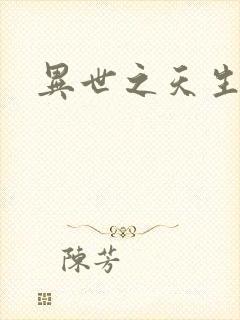 異世之天生
陳芳